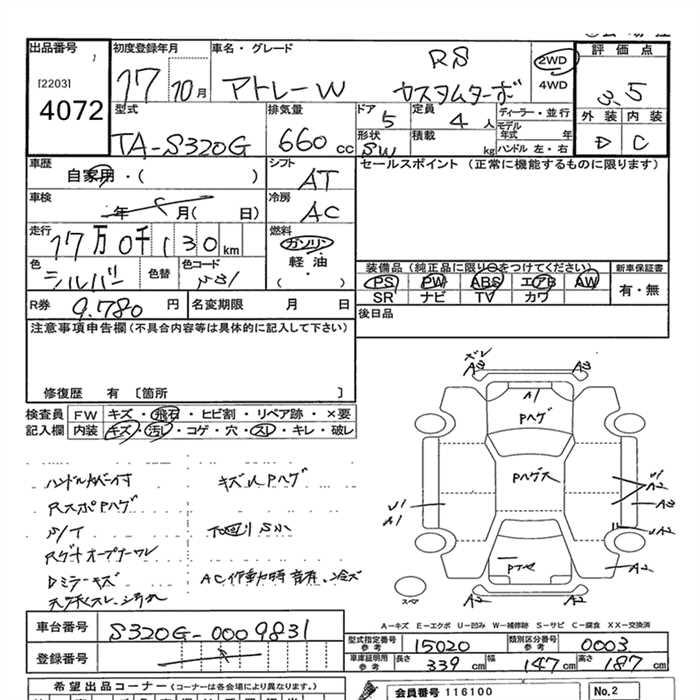 出品番号
[2203]
4072
初度登録年月
17 10月
車名・グレード
RS
アトレーW カスタムターボ
2WD
4WD
評価点
3.5
外装 内装
D C
型式
TA-S320G
排気量
660 cc
ドア
5
定員
4 人
形状
SW
積載
kg
ディーラー・並行
モデル年式 年
ハンドル 左・右
車歴
自家用・( )
シフト
AT
車検
年 月( 日)
冷房
AC
走行
17万0千130km
燃料
ガソリン
軽・油
( ・ )
色
シルバー
色替
色コード
R券
9.780 円
名変期限 月 日
セールスポイント (正常に機能するものに限ります)
装備品(純正品に限り○をつけてください)
新車保証書
PS PW ABS エアB AW
SR ナビ TV カワ
有・無
後日品
注意事項申告欄(不具合内容等は具体的に記入して下さい)
修復歴 有 〔箇所 〕
検査員記入欄
FW キズ・飛石・ヒビ割・リペア跡・×要
内装 キズ・汚し・コゲ・穴・スレ・キレ・破レ
ハンドルカバー付
キズ凹Pハゲ
RスポPハゲ
S/T
下回りS小
Dミラーキズ
AC作動時音有、冷ズ
A3
A3
A1
Pハゲ
Pハゲス
U1
A1
U1
A2
A3
UA2
A2
A2
A2
スペア
A-キズ E-エクボ U-凹み W-補修跡 S-サビ C-腐食 XX-交換済
車台番号
S320G-0009831
登録番号
型式指定番号 参考
15020
類別区分番号 参考
0003
車庫証明用 参考
長さ 339 cm 幅 147 cm 高さ 187 cm
希望出品コーナー(コーナーは各会場により異なります。)
会員番号 116100
No.2